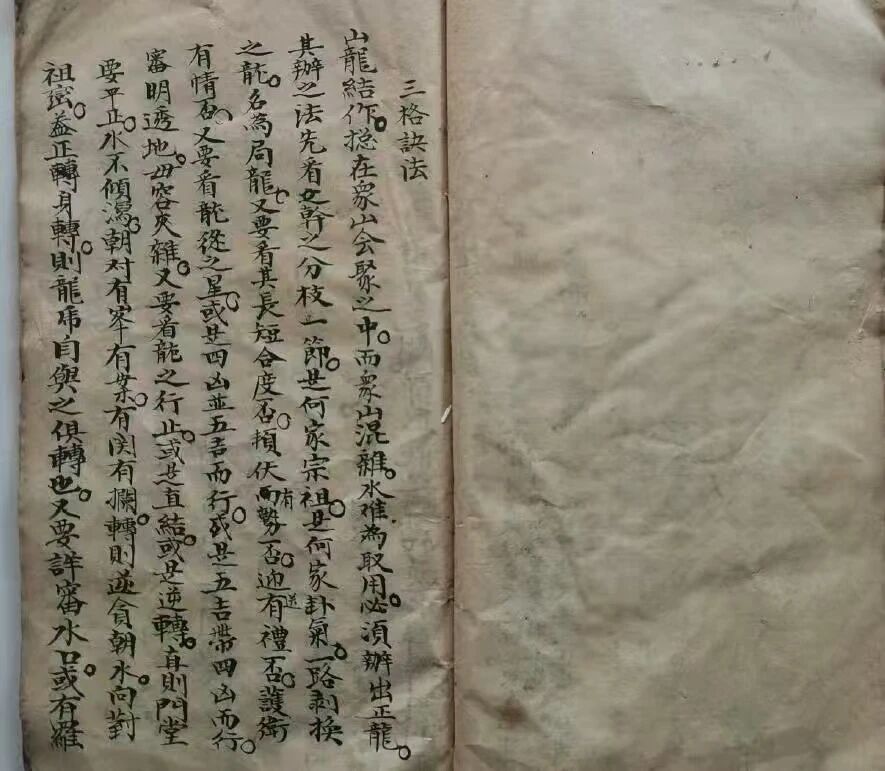 三格訣法
山龍結作。揔在衆山会聚之中。而衆山混雜。水难為取用。必湏辦出正龍。
其辦之法先看父幹之分枝一節。是何家宗祖。是何家卦氣。一路剥換
之龍。名為局龍。又要看其長短合度否。頓伏而有勢否。迎送有禮否。護衛
有情否。又要看龍從之星。或是四凶並五吉而行。或是五吉帶四凶而行。
審明透地。毋容夾雜。又要看龍之行止。或是直結。或是逆轉。直則門堂
要平正。水不傾瀉。朝对有峯有案。有関有攔。轉則逆貪朝水。向對
祖巒。盖正轉身轉。則龍虎自與之俱轉也。又要詳審水口。或有羅